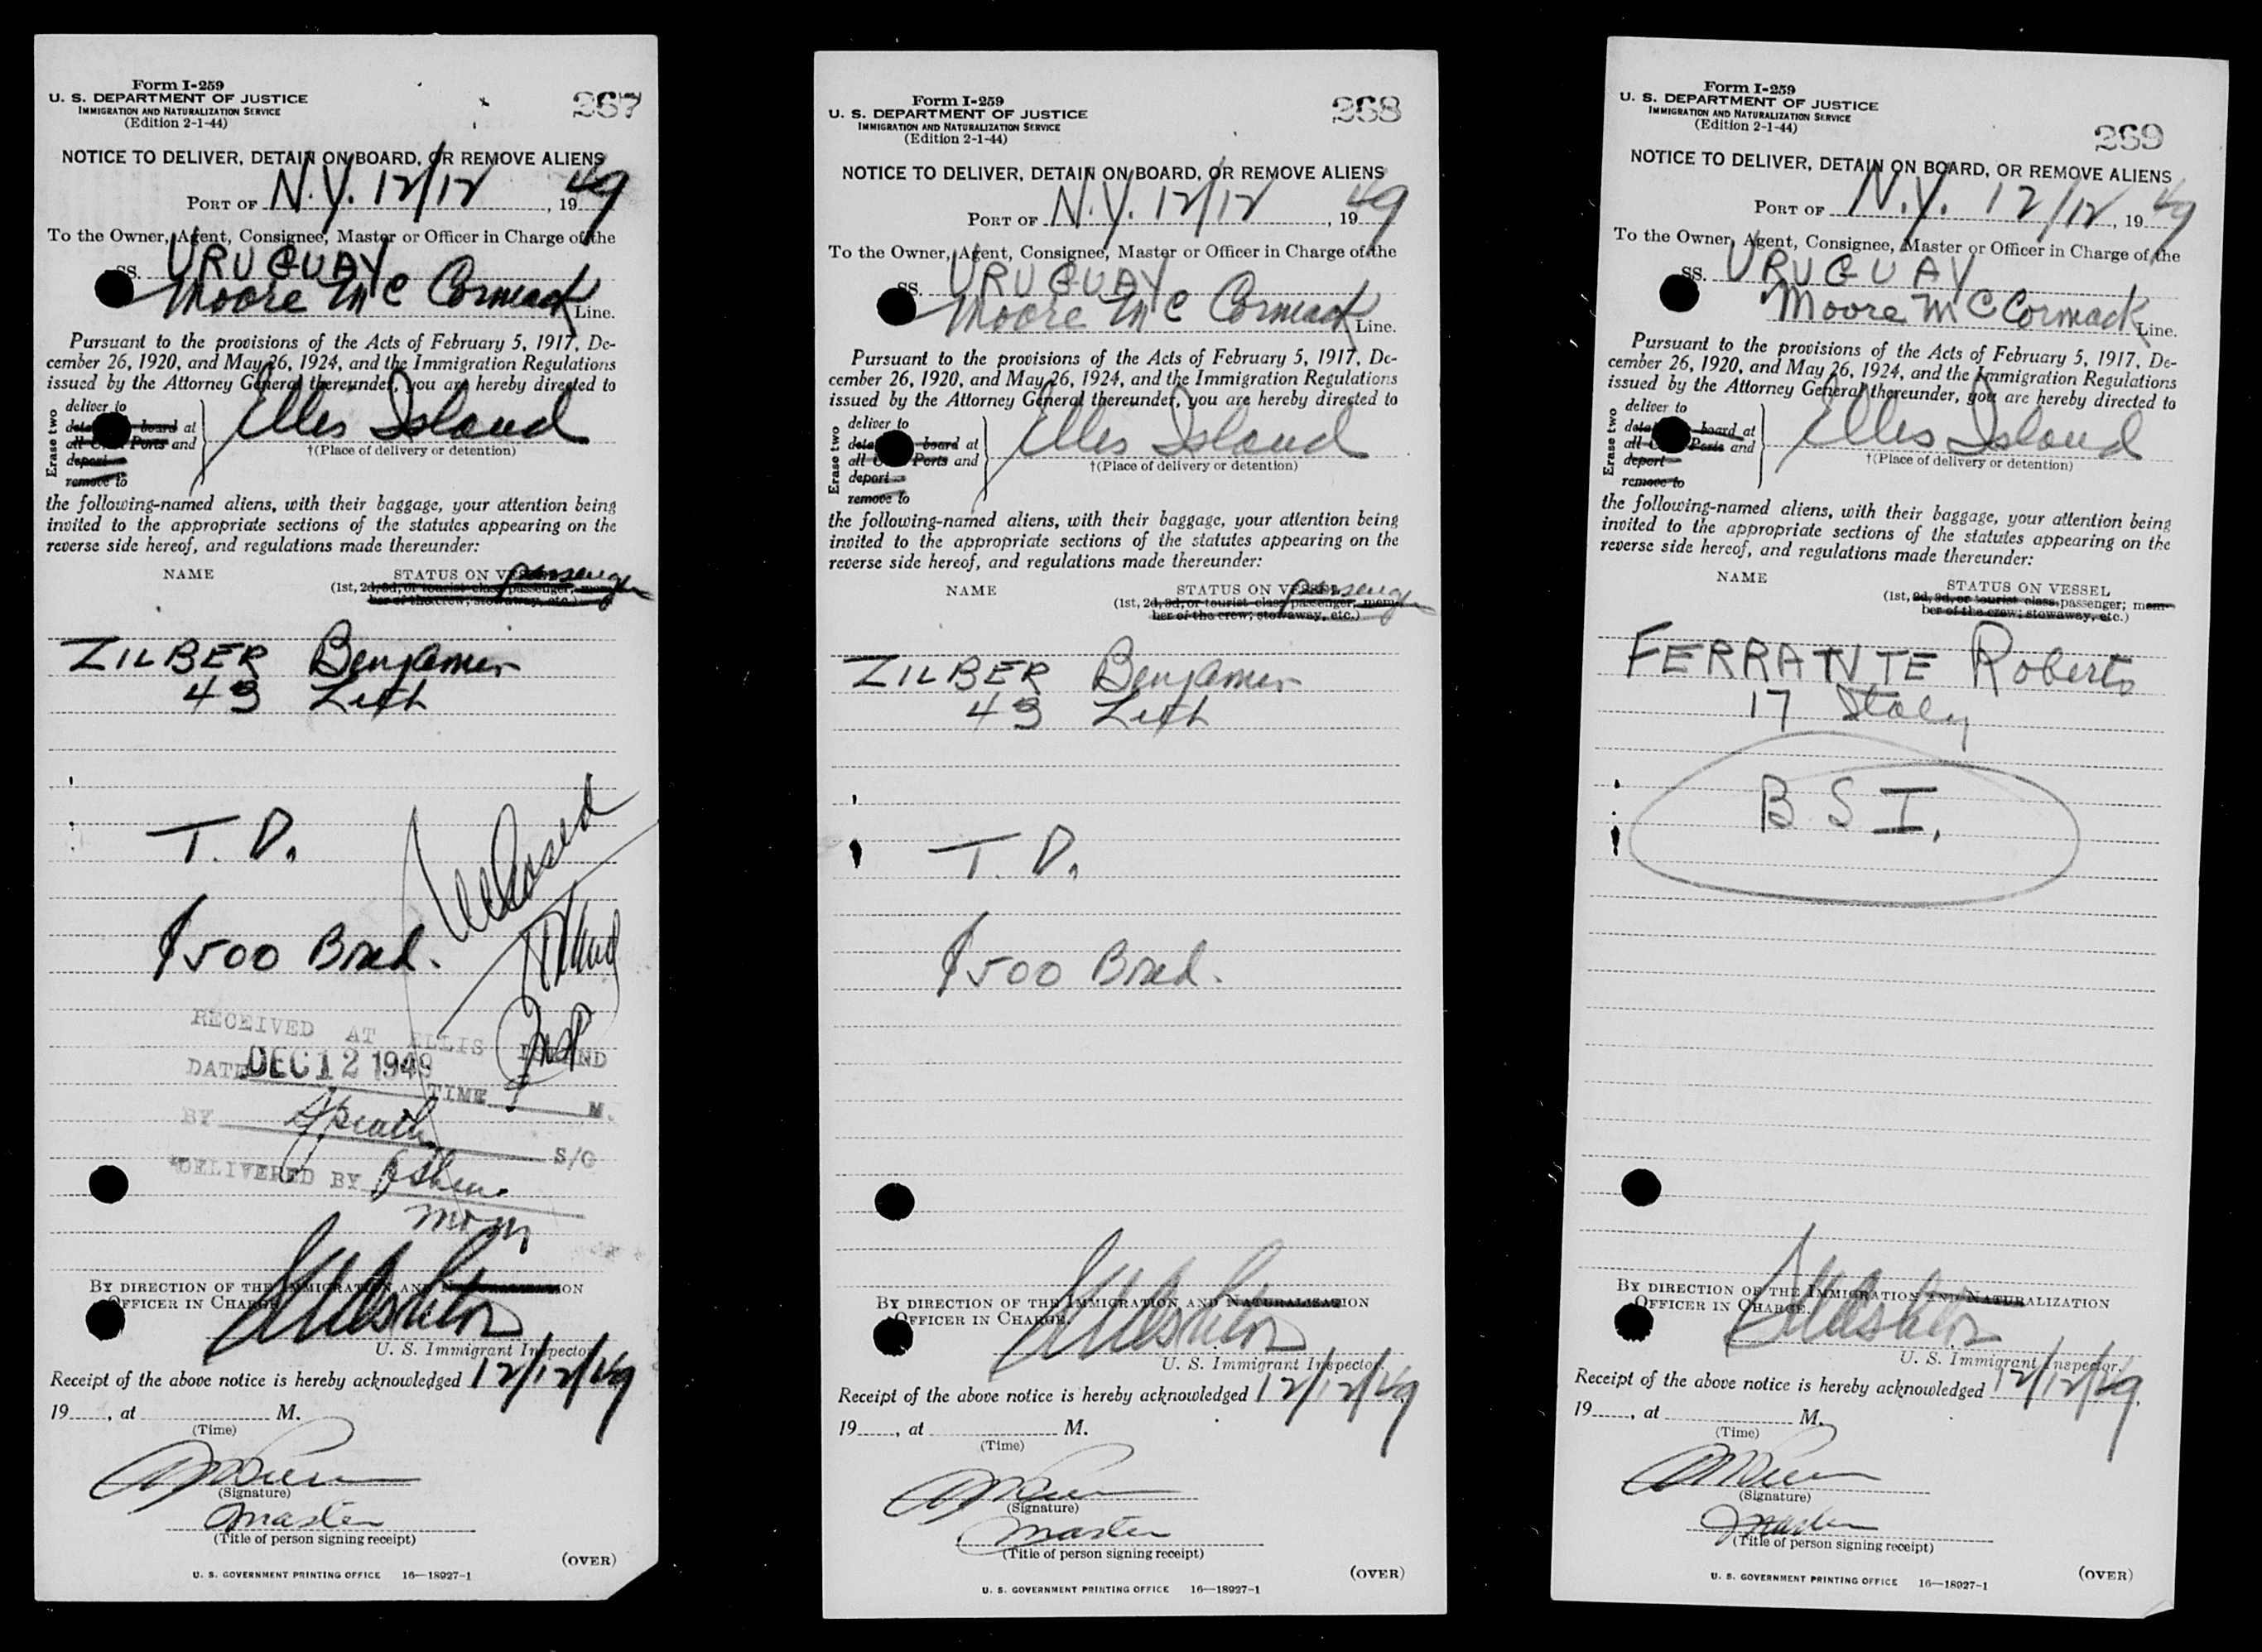 Form I-259
U. S. DEPARTMENT OF JUSTICE
IMMIGRATION AND NATURALIZATION SERVICE
(Edition 2-1-44)
267
NOTICE TO DELIVER, DETAIN ON BOARD, OR REMOVE ALIENS
PORT OF N.Y. 12/12, 1949
To the Owner, Agent, Consignee, Master or Officer in Charge of the
SS. URUGUAY
Moore McCormack Line.
Pursuant to the provisions of the Acts of February 5, 1917, De-
cember 26, 1920, and May 26, 1924, and the Immigration Regulations
issued by the Attorney General thereunder, you are hereby directed to
Erase two
deliver to
board at
all Ports and
deport
remove to
Ellis Island
†(Place of delivery or detention)
the following-named aliens, with their baggage, your attention being
invited to the appropriate sections of the statutes appearing on the
reverse side hereof, and regulations made thereunder:
NAME STATUS ON VESSEL
passenger
(1st, 2d, 3d, or tourist class passenger, mem-
ber of the crew; stowaway, etc.)
ZILBER Benjamin
43 Lith
T. D.
$500 Bond.
RECEIVED AT ELLIS ISLAND
DATE DEC 12 1949 TIME M.
BY S/G
DELIVERED BY
BY DIRECTION OF THE IMMIGRATION AND NATURALIZATION
OFFICER IN CHARGE.
U. S. Immigrant Inspector
Receipt of the above notice is hereby acknowledged 12/12/49
19......, at M.
(Time)
(Signature)
Master
(Title of person signing receipt)
(OVER)
U. S. GOVERNMENT PRINTING OFFICE 16—18927-1
Form I-259
U. S. DEPARTMENT OF JUSTICE
IMMIGRATION AND NATURALIZATION SERVICE
(Edition 2-1-44)
268
NOTICE TO DELIVER, DETAIN ON BOARD, OR REMOVE ALIENS
PORT OF N.Y. 12/12, 1949
To the Owner, Agent, Consignee, Master or Officer in Charge of the
SS. URUGUAY
Moore McCormack Line.
Pursuant to the provisions of the Acts of February 5, 1917, De-
cember 26, 1920, and May 26, 1924, and the Immigration Regulations
issued by the Attorney General thereunder, you are hereby directed to
Erase two
deliver to
board at
all Ports and
deport
remove to
Ellis Island
†(Place of delivery or detention)
the following-named aliens, with their baggage, your attention being
invited to the appropriate sections of the statutes appearing on the
reverse side hereof, and regulations made thereunder:
NAME STATUS ON VESSEL
passenger
(1st, 2d, 3d, or tourist class passenger, mem-
ber of the crew; stowaway, etc.)
ZILBER Benjamin
43 Lith
T. D.
$500 Bond.
BY DIRECTION OF THE IMMIGRATION AND NATURALIZATION
OFFICER IN CHARGE.
U. S. Immigrant Inspector.
Receipt of the above notice is hereby acknowledged 12/12/49
19......, at M.
(Time)
(Signature)
Master
(Title of person signing receipt)
(OVER)
U. S. GOVERNMENT PRINTING OFFICE 16—18927-1
Form I-259
U. S. DEPARTMENT OF JUSTICE
IMMIGRATION AND NATURALIZATION SERVICE
(Edition 2-1-44)
269
NOTICE TO DELIVER, DETAIN ON BOARD, OR REMOVE ALIENS
PORT OF N.Y. 12/12, 1949
To the Owner, Agent, Consignee, Master or Officer in Charge of the
SS. URUGUAY
Moore McCormack Line.
Pursuant to the provisions of the Acts of February 5, 1917, De-
cember 26, 1920, and May 26, 1924, and the Immigration Regulations
issued by the Attorney General thereunder, you are hereby directed to
Erase two
deliver to
board at
all Ports and
deport
remove to
Ellis Island
†(Place of delivery or detention)
the following-named aliens, with their baggage, your attention being
invited to the appropriate sections of the statutes appearing on the
reverse side hereof, and regulations made thereunder:
NAME STATUS ON VESSEL
(1st, 2d, 3d, or tourist class, passenger; mem-
ber of the crew; stowaway, etc.)
FERRANTE Roberto
17 Italy
B S I.
BY DIRECTION OF THE IMMIGRATION AND NATURALIZATION
OFFICER IN CHARGE.
U. S. Immigrant Inspector.
Receipt of the above notice is hereby acknowledged 12/12/49
19......, at M.
(Time)
(Signature)
Master
(Title of person signing receipt)
(OVER)
U. S. GOVERNMENT PRINTING OFFICE 16—18927-1